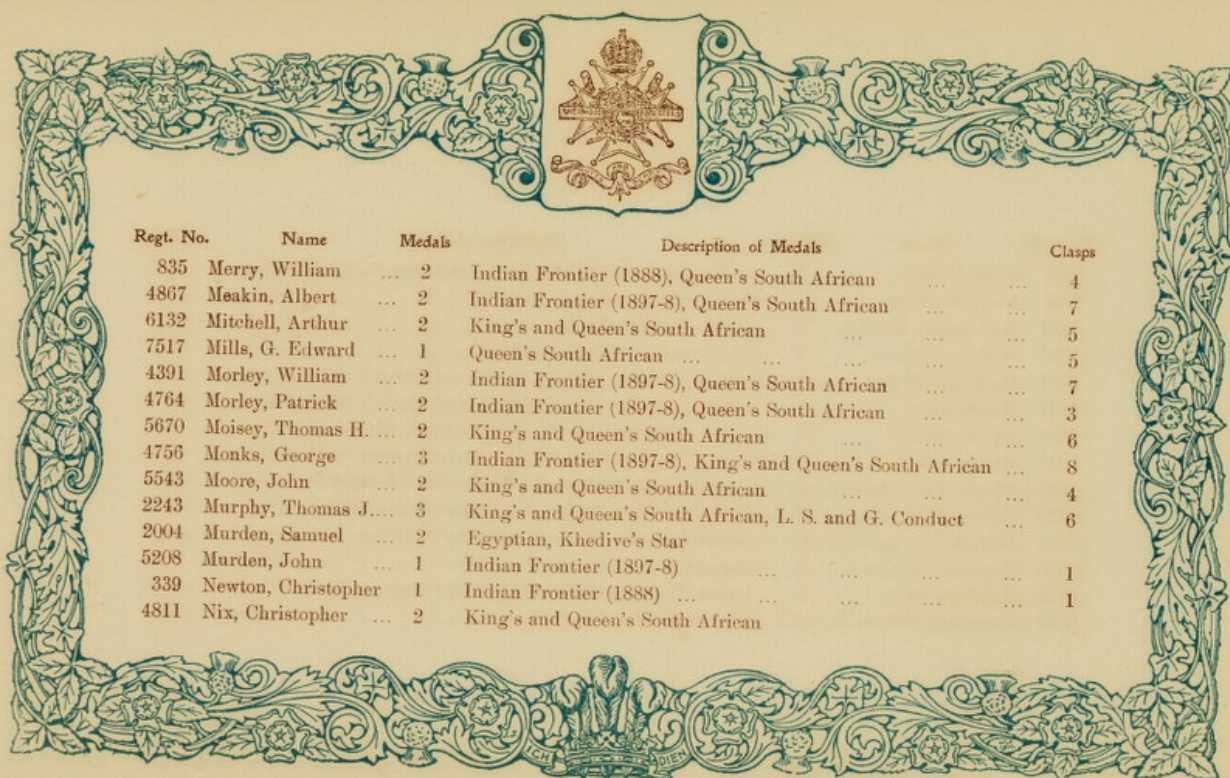 Regt. No. Name Medals Description of Medals Clasps
835 Merry, William ... 2 Indian Frontier (1888), Queen's South African ... ... 4
4867 Meakin, Albert ... 2 Indian Frontier (1897-8), Queen's South African ... ... 7
6132 Mitchell, Arthur ... 2 King's and Queen's South African ... ... ... 5
7517 Mills, G. Edward ... 1 Queen's South African ... ... ... ... 5
4391 Morley, William ... 2 Indian Frontier (1897-8), Queen's South African ... ... 7
4764 Morley, Patrick ... 2 Indian Frontier (1897-8), Queen's South African ... ... 3
5670 Moisey, Thomas H. ... 2 King's and Queen's South African ... ... ... 6
4756 Monks, George ... 3 Indian Frontier (1897-8), King's and Queen's South African ... 8
5543 Moore, John ... 2 King's and Queen's South African ... ... ... 4
2243 Murphy, Thomas J.... 3 King's and Queen's South African, L. S. and G. Conduct ... 6
2004 Murden, Samuel ... 2 Egyptian, Khedive's Star
5208 Murden, John ... 1 Indian Frontier (1897-8) ... ... ... ... 1
339 Newton, Christopher 1 Indian Frontier (1888) ... ... ... ... ... 1
4811 Nix, Christopher ... 2 King's and Queen's South African
ICH DIEN